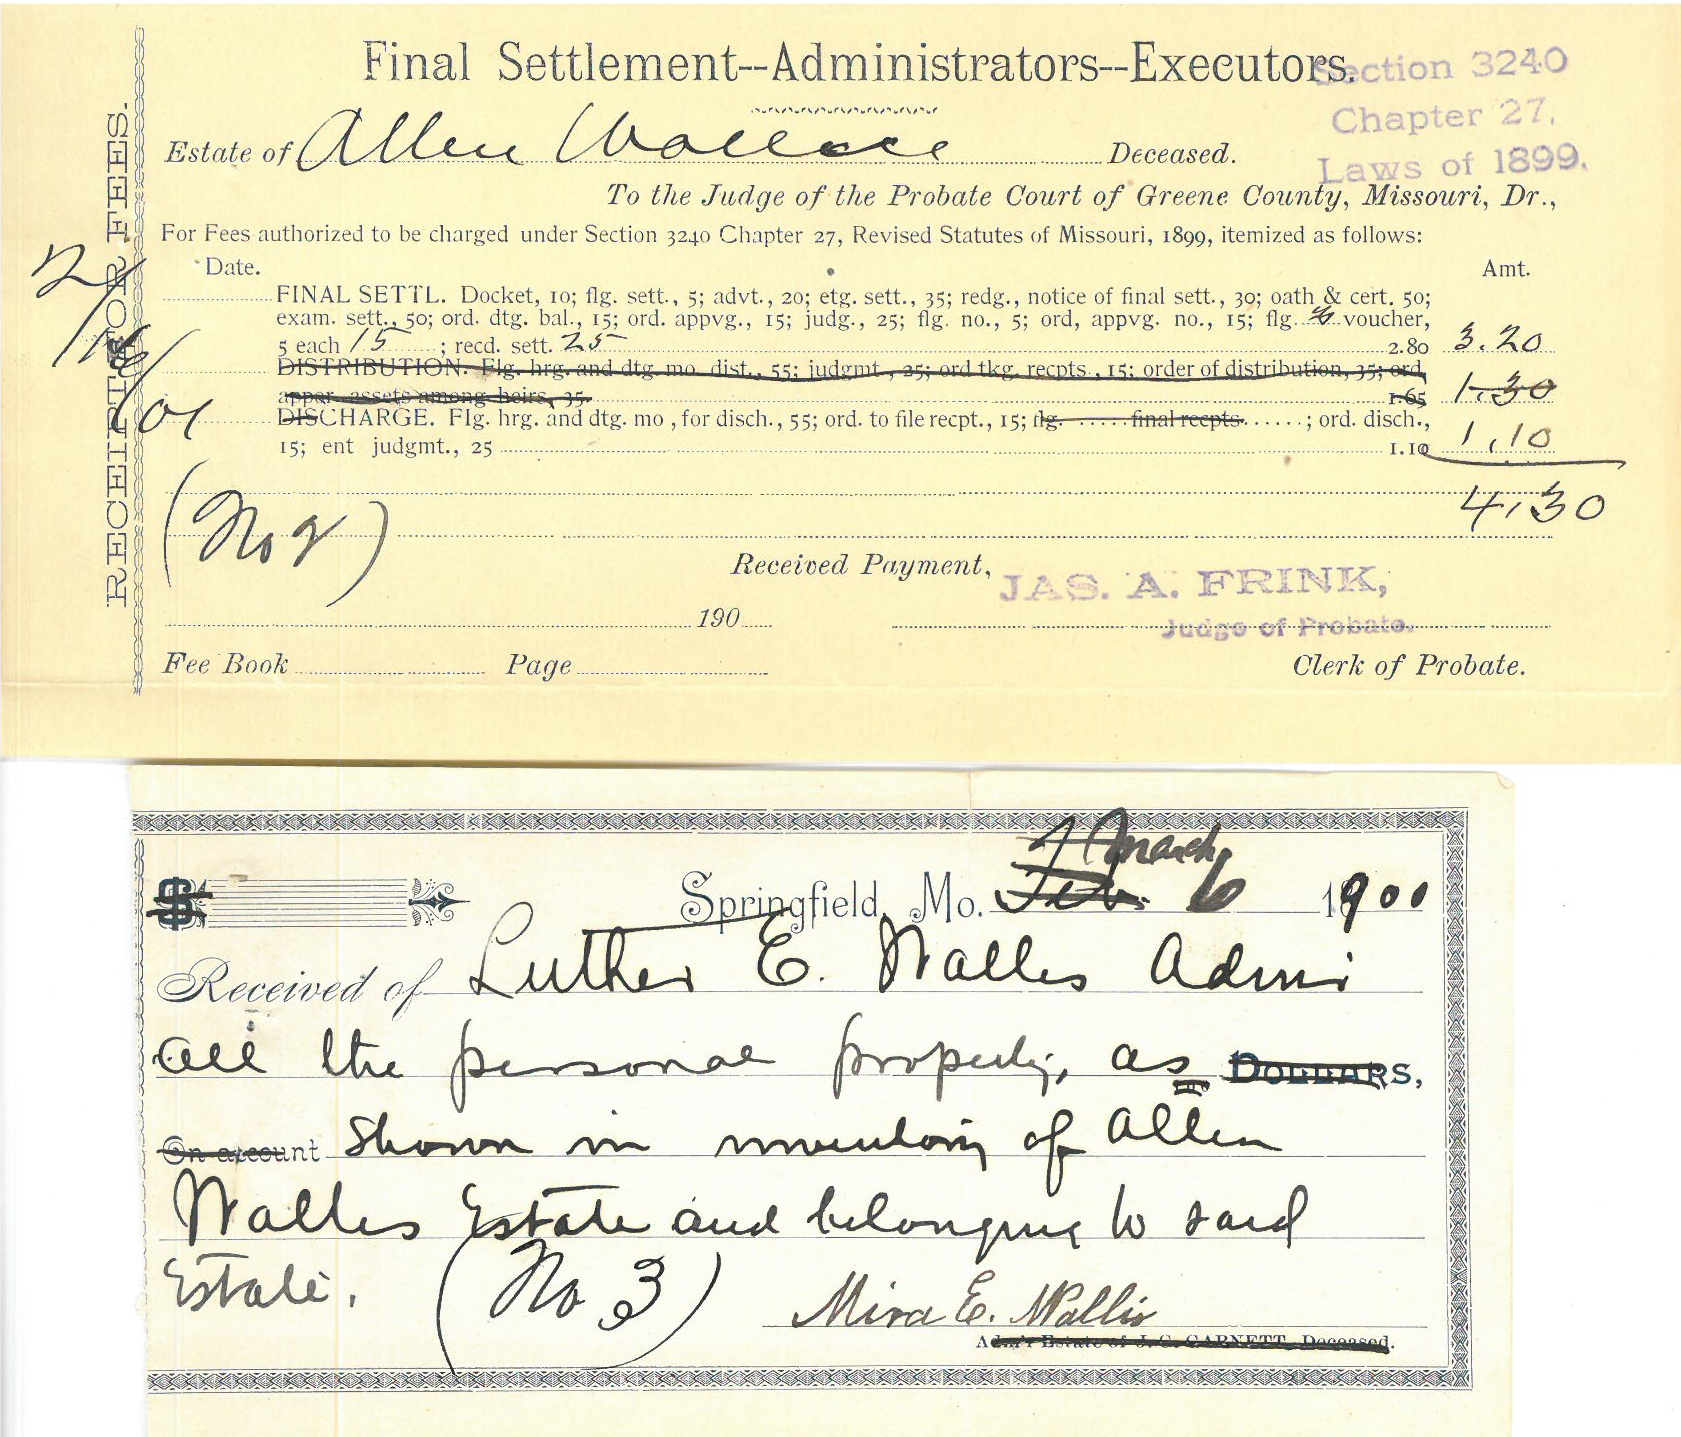 Final Settlement--Administrators--Executors.
Section 3240
Chapter 27,
Laws of 1899.
Estate of Allen Wallace Deceased.
To the Judge of the Probate Court of Greene County, Missouri, Dr.,
For Fees authorized to be charged under Section 3240 Chapter 27, Revised Statutes of Missouri, 1899, itemized as follows:
Date. Amt.
FINAL SETTL. Docket, 10; flg. sett., 5; advt., 20; etg. sett., 35; redg., notice of final sett., 30; oath & cert. 50;
exam. sett., 50; ord. dtg. bal., 15; ord. appvg., 15; judg., 25; flg. no., 5; ord, appvg. no., 15; flg voucher,
5 each 15 ; recd. sett. 25 2.80 3.20
DISTRIBUTION. Flg. hrg. and dtg. mo. dist., 55; judgmt., 25; ord tkg. recpts., 15; order of distribution, 35; ord,
appor. assets among heirs, 35. 1.65 1.30
DISCHARGE. Flg. hrg. and dtg. mo , for disch., 55; ord. to file recpt., 15; flg. final recpts. ; ord. disch.,
15; ent judgmt., 25 1.10 1.10
4.30
(No 2)
Received Payment,
JAS. A. FRINK,
Judge of Probate.
190
Fee Book Page Clerk of Probate.
RECEIPT FOR FEES.
2/16/01
March
$ Springfield, Mo. Feb. 6 1900
Received of Luther E. Wallis Admr
all the personal property, as DOLLARS,
On account shown in inventory of Allen
Wallis Estate and belonging to said
Estate. (No 3) Mira E. Wallis
Adm'r Estate of J. C. GARNETT, Deceased.